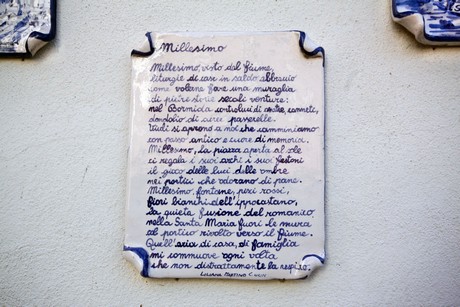 Millesimo
Millesimo, visto dal fiume,
liturgie di case in saldo abbraccio
come volane fare una muraglia
di pietre storie secoli venture:
nel Bormida controluci di ontre, canneti,
dondolio di aeree passerelle.
Tardi si aprono a noi che camminiamo
con passo antico e cuore di memoria.
Millesimo, la piazza aperta al sole
ci regala i suoi archi i suoi festoni
il gioco delle luci delle ombre
nei portici che odorano di pane.
Millesimo, fontane, pini rossi,
fiori bianchi dell'ippocastano,
la quieta fusione del romanico
nella Santa Maria fuori le mura
al portico rivolto verso il fiume.
Quell'aria di casa, di famiglia
mi commuove ogni volta
che non distrattamente la respiro.